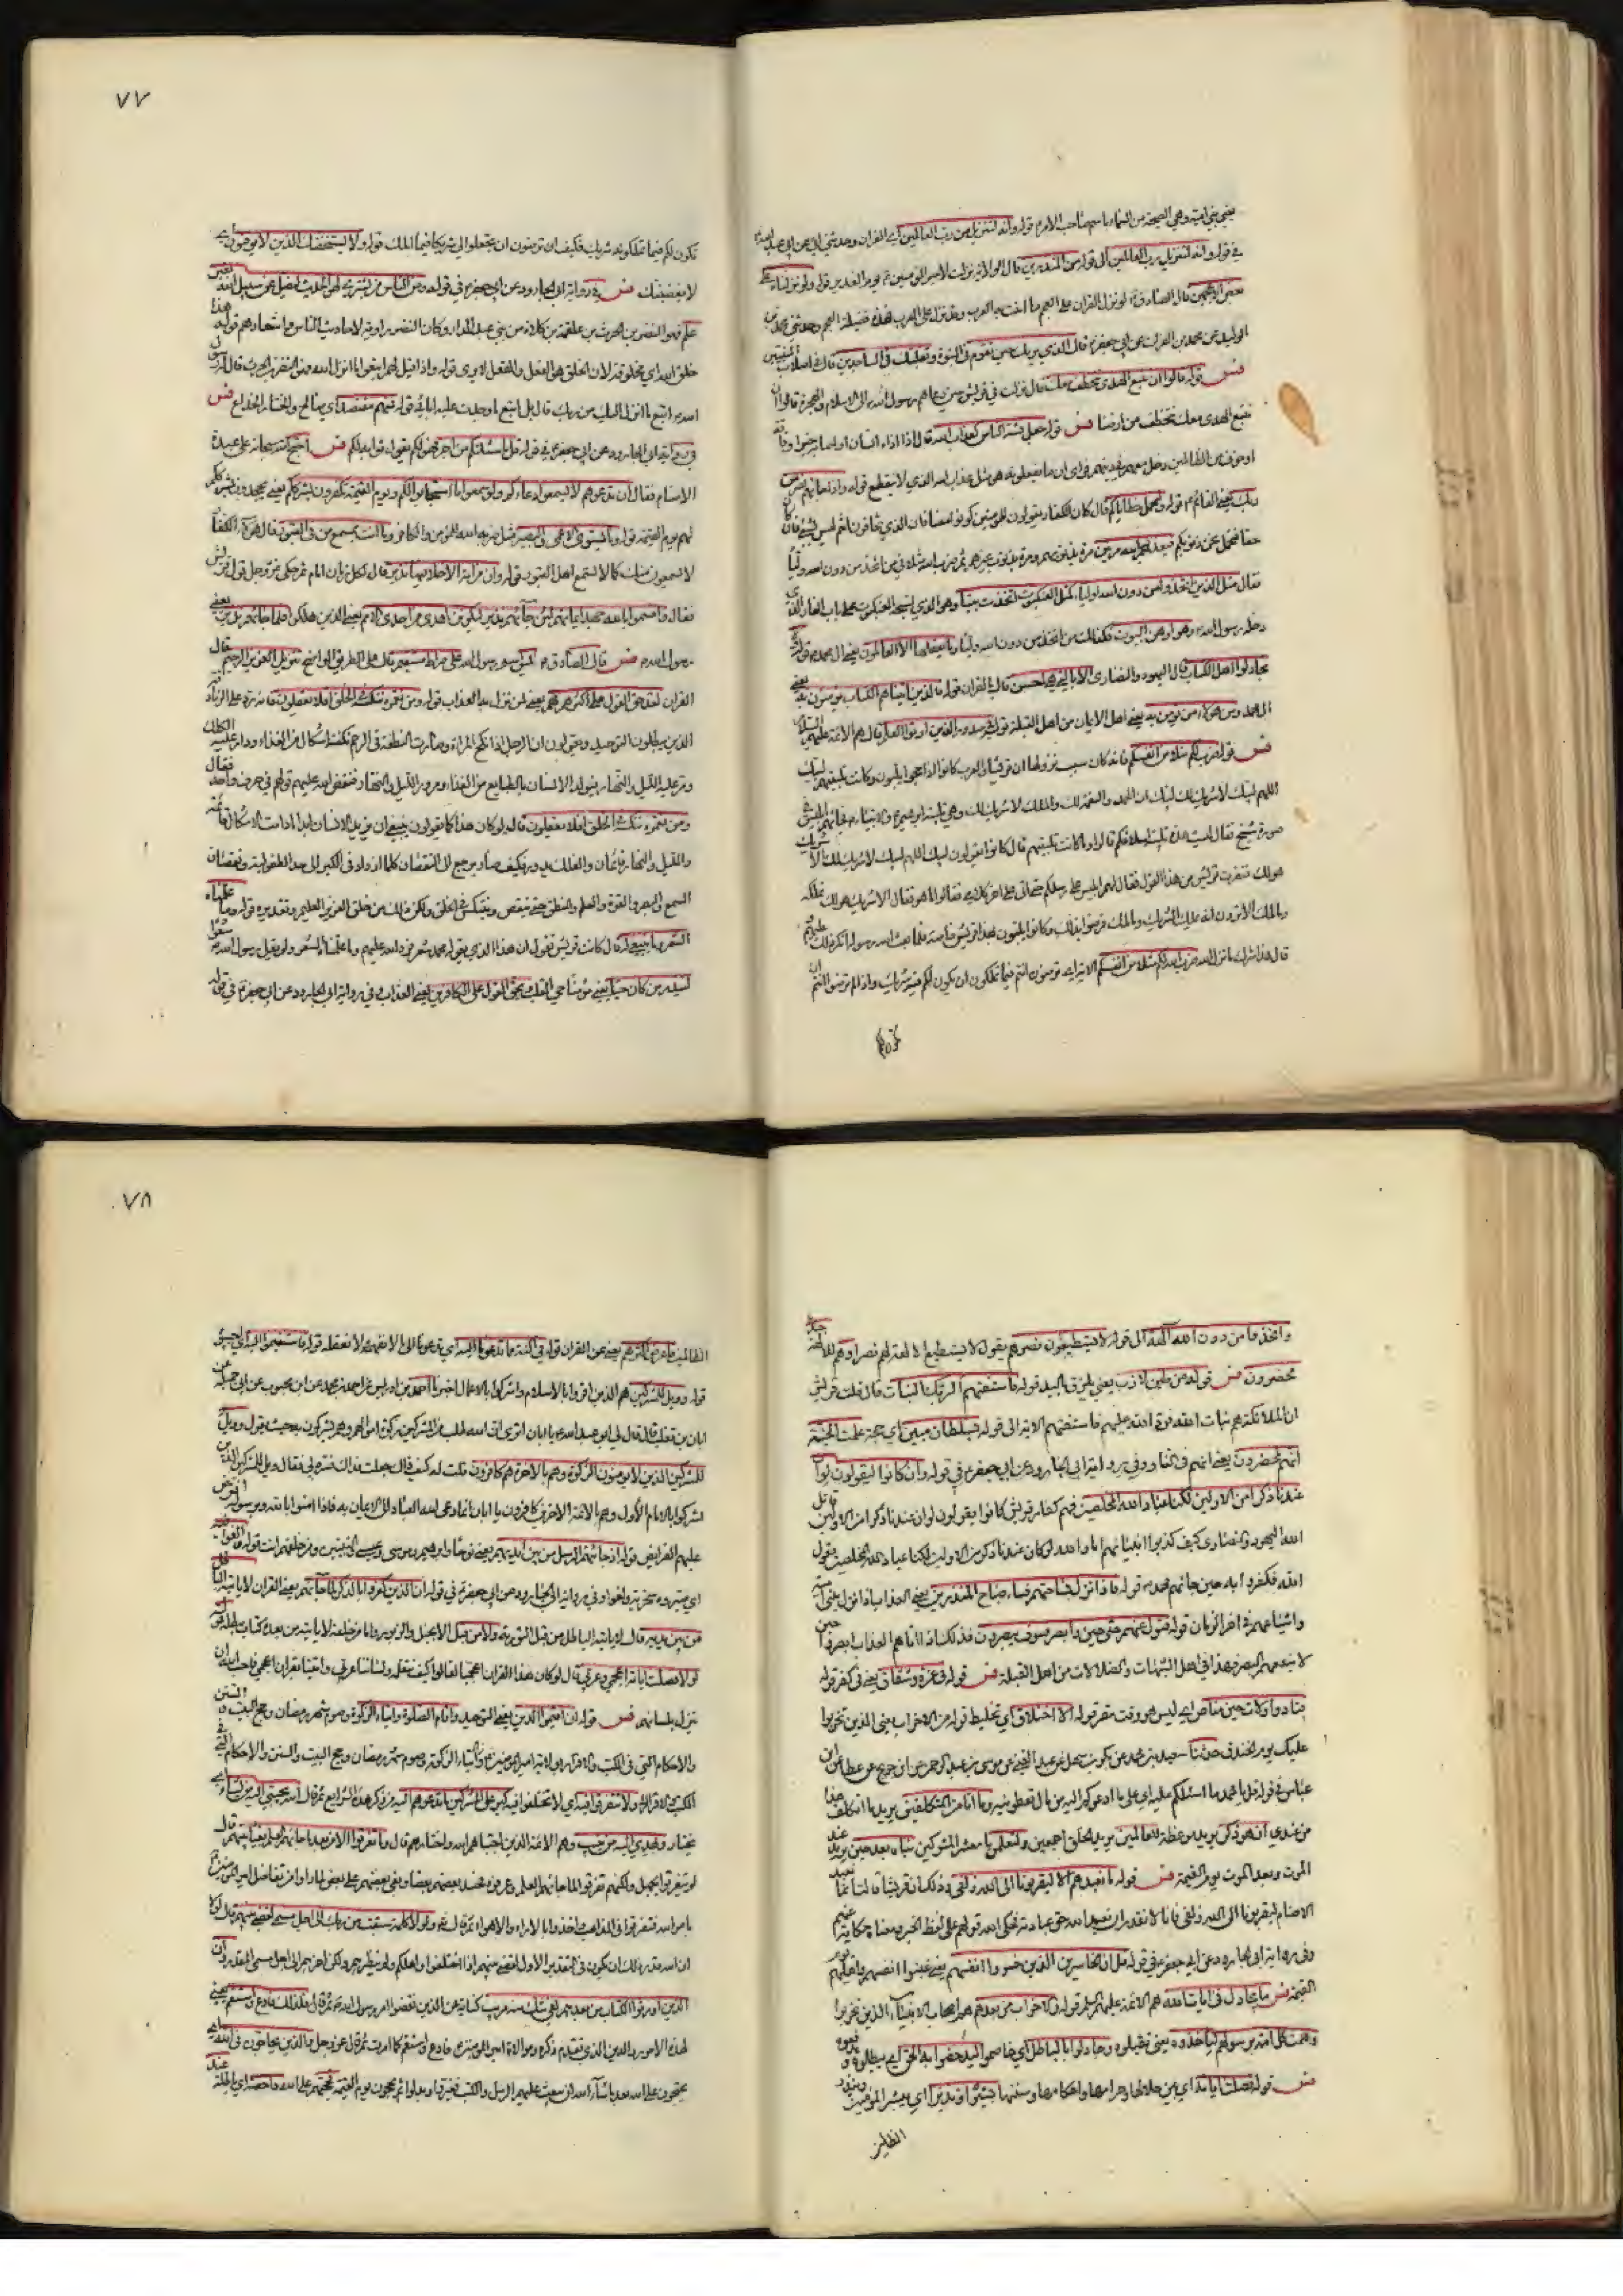 يعني بني امية وهي الصيحة من السماء باسم صاحب الامر قوله وانه لتنزيل من رب العالمين اي القران وحدثني ابي عن
في قوله وانه لتنزيل رب العالمين الى قوله من المنذرين قال الولاية نزلت لامير المومنين يوم الغدير قوله ولو نزلناه على
بعض الاعجمين قال الصادق لو نزل القران على العجم ما امنت به العرب وقد نزل على العرب فهذه فضيلة العجم وحدثني محمد بن
الوليد عن محمد بن الفرات عن ابي جعفر قال الذي يريك حين تقوم في النبوة وتقلبك في الساجدين قال في اصلاب النبيين
فس قوله قالوا ان نتبع الهدى معك نتخطف قال نزلت في قريش حين دعاهم رسول الله الى الاسلام والهجرة قالوا ان
نتبع الهدى معك نتخطف من ارضنا فس قوله جعل فتنة الناس كعذاب الله قال اذا اذاه انسان او اصابه ضر او فاقة
او خوف من الظالمين دخل معهم في دينهم فراى ان ما يفعلونه هو مثل عذاب الله الذي لا ينقطع قوله
ربك يعني القائم قوله ولنحمل خطاياكم قال كان الكفار يقولون للمؤمنين كونوا معنا فان الذي تخافون انتم ليس بشئ فان كان
حقا فنحمل نحن ذنوبكم فيعذبهم الله مرتين مرة بذنوبهم ومرة بذنوب غيرهم ثم ضرب الله مثلا في من اتخذ من دون الله وليا
فقال مثل الذين اتخذوا من دون الله اولياء كمثل العنكبوت اتخذت بيتا وهو الذي نسجه العنكبوت على باب الغار الذي
دخله رسول الله وهو اوهن البيوت فكذلك من اتخذ من دون الله وليا وما يعقلها الا العالمون يعني ال محمد قوله ولا
تجادلوا اهل الكتاب قال اليهود والنصارى الا بالتي هي احسن قال بالقران قوله فالذين اتيناهم الكتاب يؤمنون به يعني
ال محمد ومن هؤلاء من يؤمن به يعني اهل الايمان من اهل القبلة قوله في صدور الذين اوتوا العلم قال هم الائمة عليهم السلام
فس قوله ضرب لكم مثلا من انفسكم فانه كان سبب نزولها ان قريشا والعرب كانوا اذا حجوا يلبون وكانت تلبيتهم لبيك
اللهم لبيك لا شريك لك لبيك ان الحمد والنعمة لك والملك لا شريك لك وهي تلبية ابراهيم والانبياء فجاءهم ابليس في
صورة شيخ فقال ليست هذه تلبية اسلافكم قالوا وما كانت تلبيتهم قال كانوا يقولون لبيك اللهم لبيك لا شريك لك الا شريك
هو لك فنفرت قريش من هذا القول فقال لهم ابليس على رسلكم حتى اتي على اخر كلامي فقالوا ما هو فقال الا شريك هو لك تملكه
وما ملك الا ترون انه يملك الشريك وما ملك فرضوا بذلك وكانوا يلبون بهذا قريش خاصة فلما بعث الله رسوله انكر ذلك عليهم
قال هذا شرك فانزل الله ضرب الله لكم مثلا من انفسكم الاية اي ترضون انتم فيما تملكون ان يكون لكم فيه شريك واذا لم ترضوا انتم ان
٧٧
تكون لكم فيما تملكونه شريك فكيف ترضون ان تجعلوا لي شريكا فيما املك قوله ولا يستخفنك الذين لا يوقنون اي
لا يغضبنك فس في رواية ابي الجارود عن ابي جعفر في قوله ومن الناس من يشتري لهو الحديث ليضل عن سبيل الله بغير
علم فهو النضر بن الحرث بن علقمة بن كلدة من بني عبد الدار وكان النضر راوية لاحاديث الناس واشعارهم قوله هذا
خلق الله اي مخلوقه لان الخلق هو الفعل والفعل لا يرى قوله واذا قيل لهم اتبعوا ما انزل الله فهو النضر بن الحرث قال له رسول
الله اتبع ما انزل اليك من ربك قال بل اتبع ما وجدت عليه ابائي قوله فمنهم مقتصد اي صالح والختار الخداع فس
في رواية ابي الجارود عن ابي جعفر في قوله قل ما سئلتكم من اجر فهو لكم فس احتج الله سبحانه على عبدة
الاصنام فقال ان تدعوهم لا يسمعوا دعاءكم ولو سمعوا ما استجابوا لكم ويوم القيمة يكفرون بشرككم يعني يجحدون بشرككم
لهم يوم القيمة قوله وما يستوي الاعمى والبصير مثل ضربه الله للمؤمن والكافر وما انت بمسمع من في القبور قال هؤلاء الكفار
لا يسمعون منك كما لا يسمع اهل القبور قوله وان من امة الا خلا فيها نذير قال لكل زمان امام ثم حكى عز وجل قول قريش
فقال واقسموا بالله جهد ايمانهم لئن جاءهم نذير ليكونن اهدى من احدى الامم يعني الذين هلكوا فلما جاءهم نذير يعني
رسول الله فس قال الصادق يس اسم رسول الله على صراط مستقيم قال على الطريق الواضح تنزيل العزيز الرحيم قال
القران لقد حق القول على اكثرهم يعني لمن نزل به العذاب قوله ومن نعمره ننكسه في الخلق افلا يعقلون فانه رد على الزنادقة
الذين يبطلون التوحيد ويقولون ان الرجل اذا نكح المراة وصارت النطفة في الرحم تلقته اشكال من الغذاء ودار عليه الفلك
ومر عليه الليل والنهار فيتولد الانسان بالطبايع من الغذاء ومرور الليل والنهار فنقض الله عليهم قولهم في حرف واحد فقال
ومن نعمره ننكسه في الخلق افلا يعقلون قال لو كان هذا كما يقولون ينبغي ان يزيد الانسان ابدا ما دامت الاشكال قائمة
والليل والنهار قائمان والفلك يدور فكيف صار يرجع الى النقصان كلما ازداد في الكبر الى حد الطفولية ونقصان
السمع والبصر والقوة والعلم والمنطق حتى ينقص وينتكس في الخلق ولكن ذلك من خلق العزيز العليم وتقديره قوله وما علمناه
الشعر وما ينبغي له قال كانت قريش تقول ان هذا الذي يقوله محمد شعر فرد الله عليهم وما علمناه الشعر ولم يقل رسول الله شعرا
لينذر من كان حيا يعني مؤمنا حي القلب ويحق القول على الكافرين يعني العذاب وفي رواية ابي الجارود عن ابي جعفر في قوله
واتخذوا من دون الله الهة الى قوله لا يستطيعون نصرهم يقول لا يستطيع الالهة لهم نصرا وهم للالهة جند
محضرون فس قوله من طين لازب يعني يلزق باليد قوله فاستفتهم الربك البنات قال قالت قريش
ان الملائكة هم بنات الله فرد الله عليهم فاستفتهم الاية الى قوله سلطان مبين اي حجة علمت الجنة
انهم لمحضرون يعني انهم في النار وفي رواية ابي الجارود عن ابي جعفر في قوله وان كانوا ليقولون لو ان
عندنا ذكرا من الاولين لكنا عباد الله المخلصين فهم كفار قريش كانوا يقولون لو ان عندنا ذكرا من الاولين قاتل
الله اليهود والنصارى كيف كذبوا انبيائهم اما والله لو كان عندنا ذكر من الاولين لكنا عباد الله المخلصين يقول
الله فكفروا به حين جائهم محمد قوله فاذا نزل بساحتهم فساء صباح المنذرين يعني العذاب اذا نزل ببني امية
واشياعهم في اخر الزمان قوله فتول عنهم حتى حين وابصر فسوف يبصرون فذلك اذا اتاهم العذاب ابصروا حين
لا ينفعهم البصر فهذا في اهل الشبهات والضلالات من اهل القبلة فس قوله في عزة وشقاق يعني في كفر قوله
فنادوا ولات حين مناص اي ليس هو وقت مفر قوله الا اختلاق اي تخليط قوله من الاحزاب يعني الذين تحزبوا
عليك يوم الخندق حدثنا سعيد بن محمد عن بكر بن سهل عن عبد الغني عن موسى بن عبد الرحمن عن ابن جريح عن عطا عن ابن
عباس في قوله قل يا محمد ما اسئلكم عليه اي على ما ادعوكم اليه من مال تعطونيه وما انا من المتكلفين يريد ما اتكلف هذا
من عندي ان هو الا ذكر يريد موعظة للعالمين يريد الخلق اجمعين ولتعلمن يا معشر المشركين نباه بعد حين يريد عند
الموت وبعد الموت يوم القيمة فس قوله ما نعبدهم الا ليقربونا الى الله زلفى وذلك ان قريشا قالت انما نعبد
الاصنام ليقربونا الى الله زلفى فانا لا نقدر ان نعبد الله حق عبادته فحكى الله قولهم على لفظ الخبر ومعناه حكاية عنهم
وفي رواية ابي الجارود عن ابي جعفر في قوله قل ان الخاسرين الذين خسروا انفسهم يعني غبنوا انفسهم واهليهم يوم
القيمة فس ما يجادل في ايات الله هم الائمة عليهم السلم قوله والاحزاب من بعدهم هم اصحاب الانبياء الذين تحزبوا
وهمت كل امة برسولهم لياخذوه يعني يقتلوه وجادلوا بالباطل اي خاصموا ليدحضوا به الحق اي يبطلوه ويدفعوه
فس قوله فصلت اياته اي بين حلالها وحرامها واحكامها وسننها بشيرا ونذيرا اي يبشر المومنين وينذر
الظالمين
٧٨
الظالمين فاعرض اكثرهم يعني عن القران قوله في اكنة مما تدعونا اليه اي تدعونا الى ما لا نفهمه ولا نعقله قوله فاستقيموا اليه اي اجيبوه
قوله وويل للمشركين هم الذين اقروا بالاسلام واشركوا بالاعمال اخبرنا احمد بن ادريس عن احمد بن محمد عن ابن محبوب عن ابي جميلة عن
ابان بن تغلب قال قال لي ابو عبد الله يا ابان اترى ان الله طلب من المشركين زكوة اموالهم وهم يشركون به حيث يقول وويل
للمشركين الذين لا يؤمنون الزكوة وهم بالاخرة هم كافرون قلت له كيف ذاك جعلت فداك فسره لي فقال ويل للمشركين الذين
اشركوا بالامام الاول وهم بالائمة الاخرين كافرون يا ابان انما دعى الله العباد الى الايمان به فاذا امنوا بالله وبرسوله افترض
عليهم الفرايض قوله اذ جائتهم الرسل من بين ايديهم يعني نوحا وابراهيم وموسى وعيسى والنبيين ومن خلفهم انت قوله والغوا فيه
اي صيروه سخرية ولغوا وفي رواية ابي الجارود عن ابي جعفر في قوله ان الذين كفروا بالذكر لما جائهم يعني القران لا ياتيه الباطل
من بين يديه قال لا ياتيه الباطل من قبل التورية ولا من قبل الانجيل والزبور واما من خلفه لا ياتيه من بعده كتاب يبطله قوله
لولا فصلت اياته اعجمي وعربي قال لو كان هذا القران اعجميا لقالوا كيف نتعلمه ولساننا عربي واتيتنا بقران اعجمي فاحب الله ان
ينزل بلسانهم فس قوله ان اقيموا الدين يعني التوحيد واقام الصلوة وايتاء الزكوة وصوم شهر رمضان وحج البيت والسنن
والاحكام التي في الكتب والاقرار بولاية امير المومنين
يختار ويهدي اليه من ينيب وهم الائمة الذين اجتباهم الله واختارهم قال وما تفرقوا الا من بعد ما جائهم العلم بغيا بينهم قال
لم يتفرقوا بجهل ولكنهم تفرقوا لما جائهم العلم وعرفوه فحسد بعضهم بعضا وبغى بعضهم على بعض لما راوا من تفاضل امير المومنين
بامر الله فتفرقوا في المذاهب واخذوا بالاراء والاهواء ثم قال عز وجل ولولا كلمة سبقت من ربك الى اجل مسمى لقضي بينهم قال لولا
ان الله قد قدر ذلك ان يكون في التقدير الاول لقضي بينهم اذا اختلفوا واهلكهم ولم ينظرهم ولكن اخرهم الى اجل مسمى المقدر وان
الذين اورثوا الكتاب من بعدهم لفي شك منه مريب كناية عن الذين نقضوا امر رسول الله ثم قال فلذلك فادع واستقم يعني
لهذه الامور والدين الذي تقدم ذكره وموالاة امير المومنين فادع واستقم كما امرت ثم قال عز وجل والذين يحاجون في الله اي
يحتجون على الله بعد ما شاء الله ان يبعث عليهم الرسل والكتب فغيروا وبدلوا ثم يحتجون يوم القيمة فحجتهم على الله داحضة اي باطلة عند